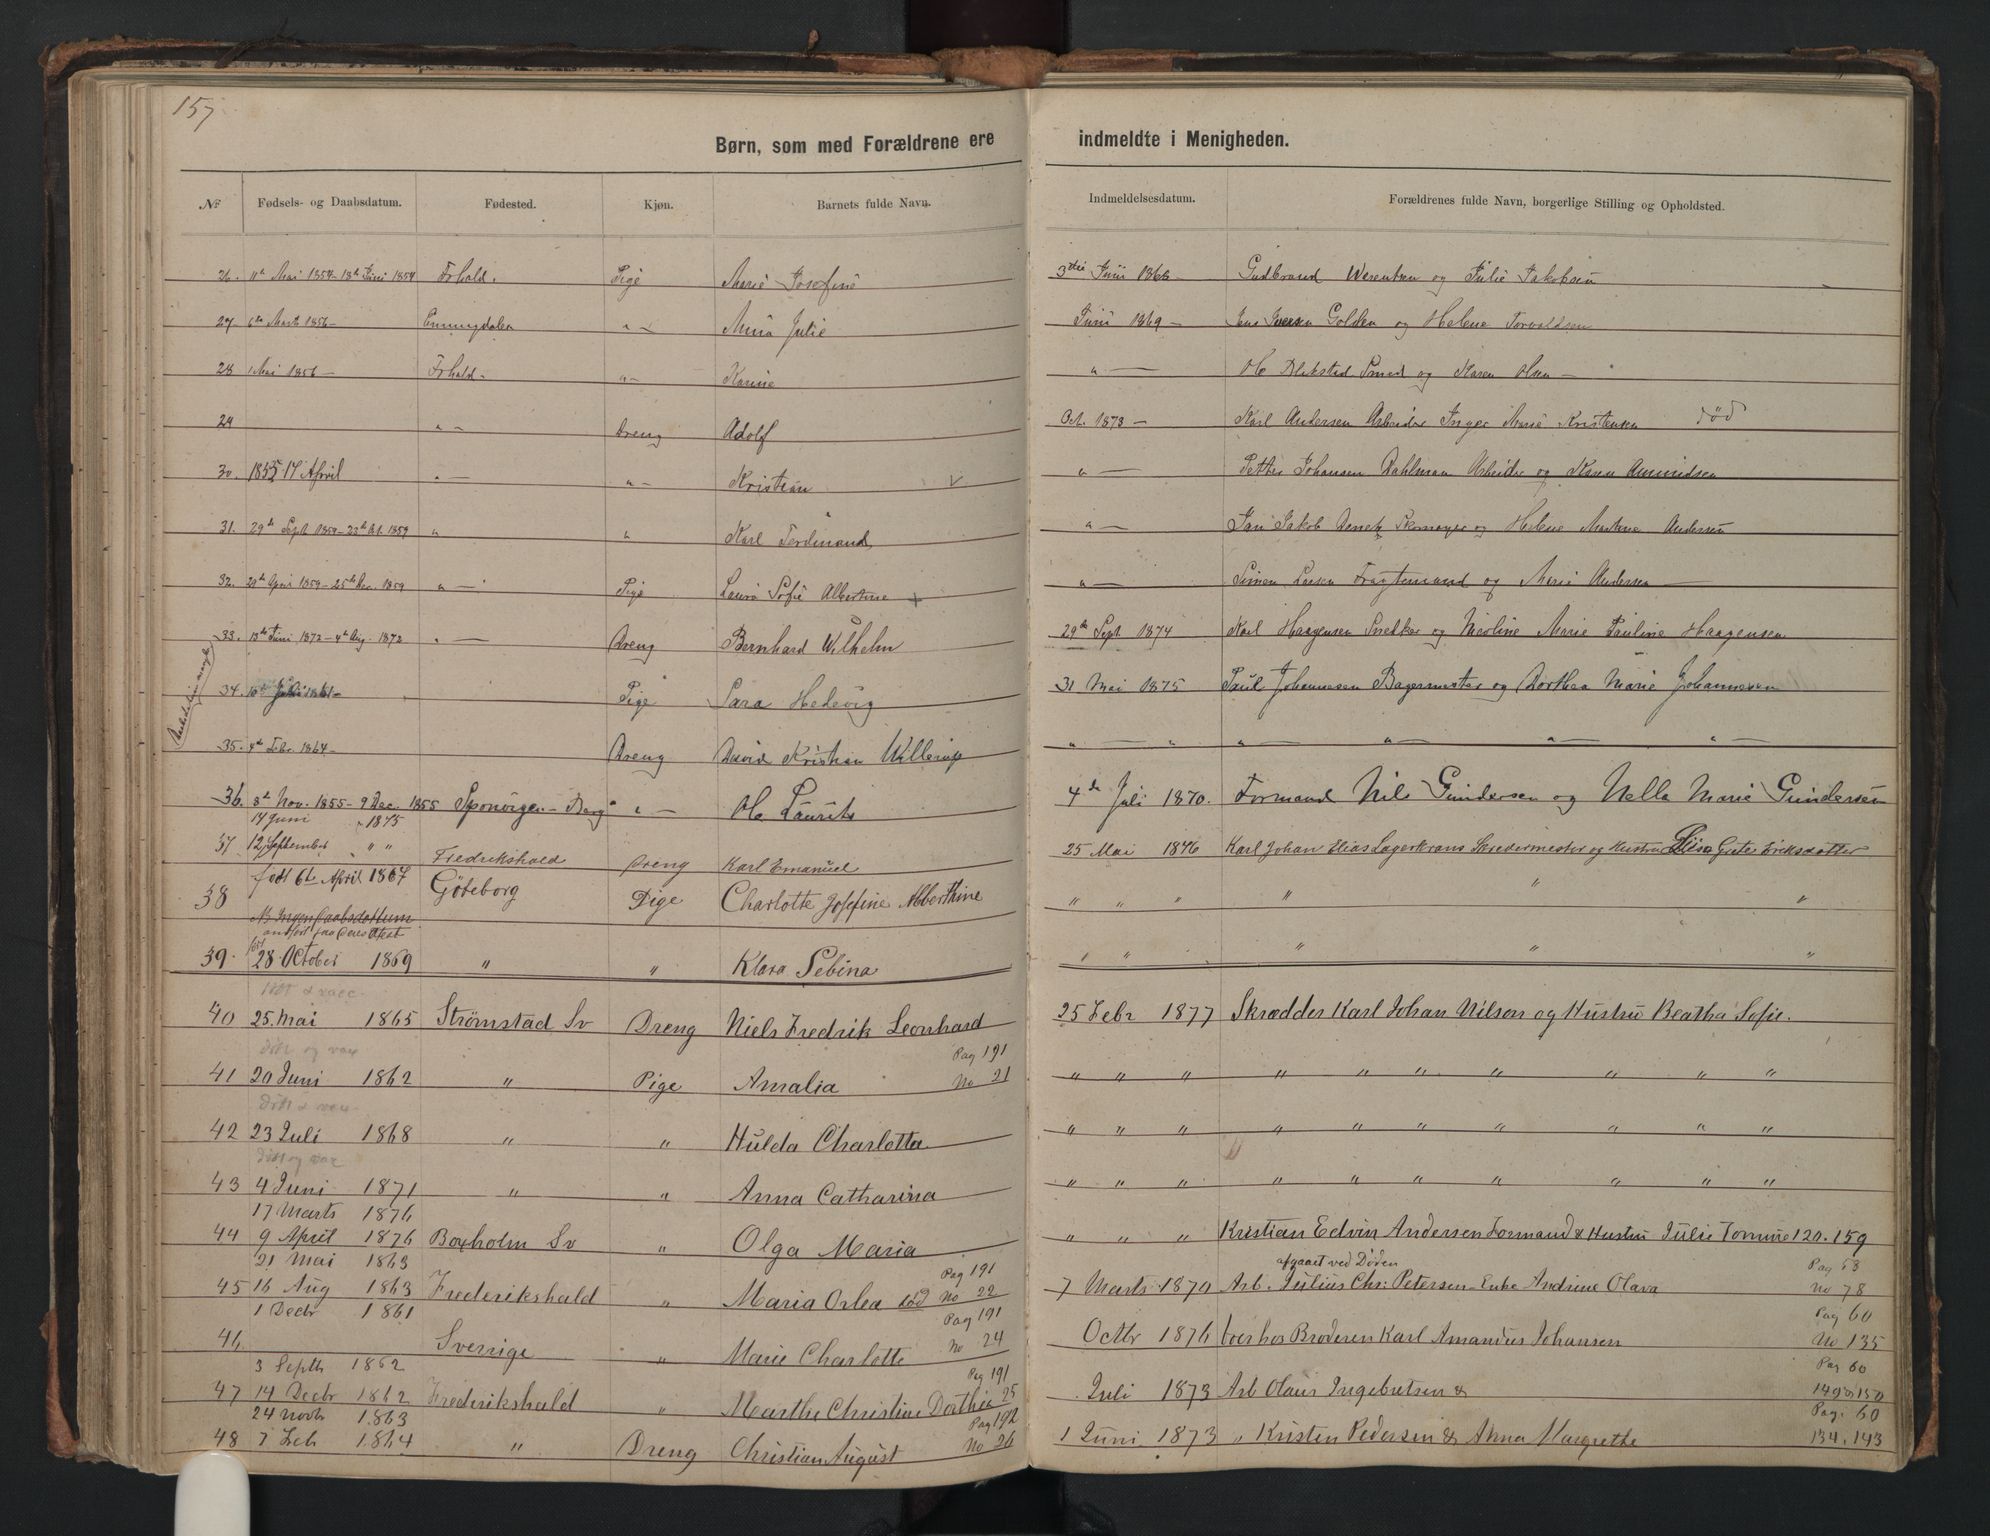 157
Børn, som med Forældrene ere indmeldte i Menigheden.
№ Fødsels- og Daabsdatum. Fødested. Kjøn. Barnets fulde Navn. Indmeldelsesdatum. Forældrenes fulde Navn, borgerlige Stilling og Opholdsted.
26. 11te Mai 1854 - 18de Juni 1854 Frhald. Pige Marie Josefine 3die Juni 1868 Gudbrand og Julie Jakobsen
27. 6te Marts 1856 - Enningdalen " - Anna Julie Juni 1869 - Jens Iversen Golden og Helene Torvaldsen
28 1 Mai 1856 - Frhald - " - Karine " - Ole Smed og Karen Olsen -
29 " - Dreng Adolf Oct. 1873 - Karl Andersen Arbeider Inger Marie Kristensen död
30. 1855 17 April " - " - Kristian v " - Petter Johansen Dahlman Arbeider og Karen Amundsen
31. 29de Sept 1859 - 23de Oct. 1859 " " Karl Ferdinand " - Jakob Skomager og Helene Martene Andersen
32. 29de April 1859 - 25de Dec. 1859 " - Pige Laura Sofie Albertine + " - Simen Larsen Fragtemand og Marie Andersen -
33. 13de Juni 1872 - 4de Aug. 1872 " - Dreng Bernhard Wilhelm 29de Sept. 1874 Karl Haagensen Snedker og Nicoline Marie Pauline Haagensen
34. 10de Juli 1861 - Pige Sara Hedevig 31 Mai 1875 Paul Johannesen Bagermester og Dorthea Marie Johannesen
35. 4de Febr. 1864 - Dreng David Kristian Willerup " - " " - " - " - " -
36. 8de Nov. 1855 - 9 Dec. 1855 Sponvigen - Berg " - Ole Laurits 4de Juli 1870. Formand Nils Gundersen og Nella Marie Gundersen
14 Juni 1875
37 12 September " " Fredrikshald Dreng Karl Emanuel 25 Mai 1876 Karl Johan Elias Lagerkrans Skredermester og Hustru Lisa Greta Eriksdotter
født 6te April 1867
38 Göteborg Pige Charlotte Josefine Albertine " " " " " " "
NB Ingen Daabsdattum
anført paa Deres Atest
født
39. 28. October 1869 " " Klara Sebina " " " " "
Döbt & vacc.
40 25. Mai 1865 Strømstad Sv Dreng Niels Fredrik Leonhard 25 Febr 1877 Skrædder Karl Johan Nilson og Hustru Beatha Sofie.
Döbt og vax Pag 191
41 20 Juni 1862 " Pige Amalia No 21 " " " " " " " " " "
Döbt & vax
42 23 Juli 1868 " " Hulda Charlotta " " " " " " " " " "
Döbt og vax
43 4 Juni 1871 " " Anna Catharina " " " " " " " " " "
17 Marts 1876
44 9 April 1876 Boxholm Sv " Olga Maria " " " Kristian Edvin Andersen Formand & Hustru Julie Tomine 120. 159
21 Mai 1863 Pag 191 afgaaet ved Døden Pag 63
45 16 Aug 1863 Frederikshald " Maria Orlea död No 22 7 Marts 1870 Arb. Julius Chr. Petersen - Enke Andrine Olava No 78
1 Decbr 1861 Pag 191 Pag 60
46 Sverrige " Marie Charlotte No 24 Octbr 1876 hos Broderen Karl Amandus Johansen No 135
3 Septb 1862 Pag 191 Pag 60
47 14 Decbr 1862 Frederikshald " Marthe Christine Dorthia 25 Juli 1873 Arb Olaus Ingebretsen & 149 & 150
24 Novbr 1863 Pag 192 Pag. 60
48 7 Feb 1864 " Dreng Christian August No 26 1 Juni 1873 " Kristen Pedersen & Anna Margrethe 134. 143